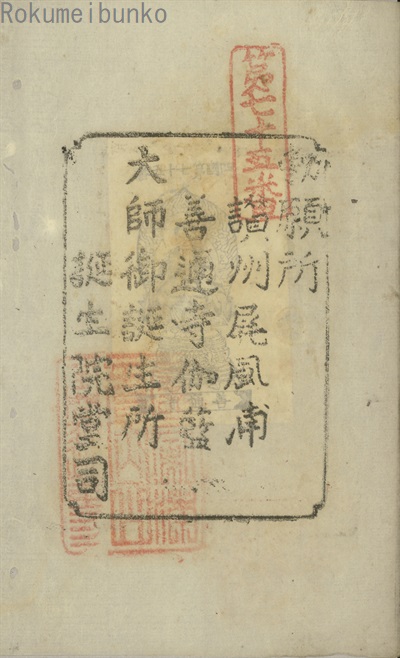 Rokumeibunko
第七十五番
勅願所
讃州屏風浦
善通寺伽藍
大師御誕生所
誕生院堂司